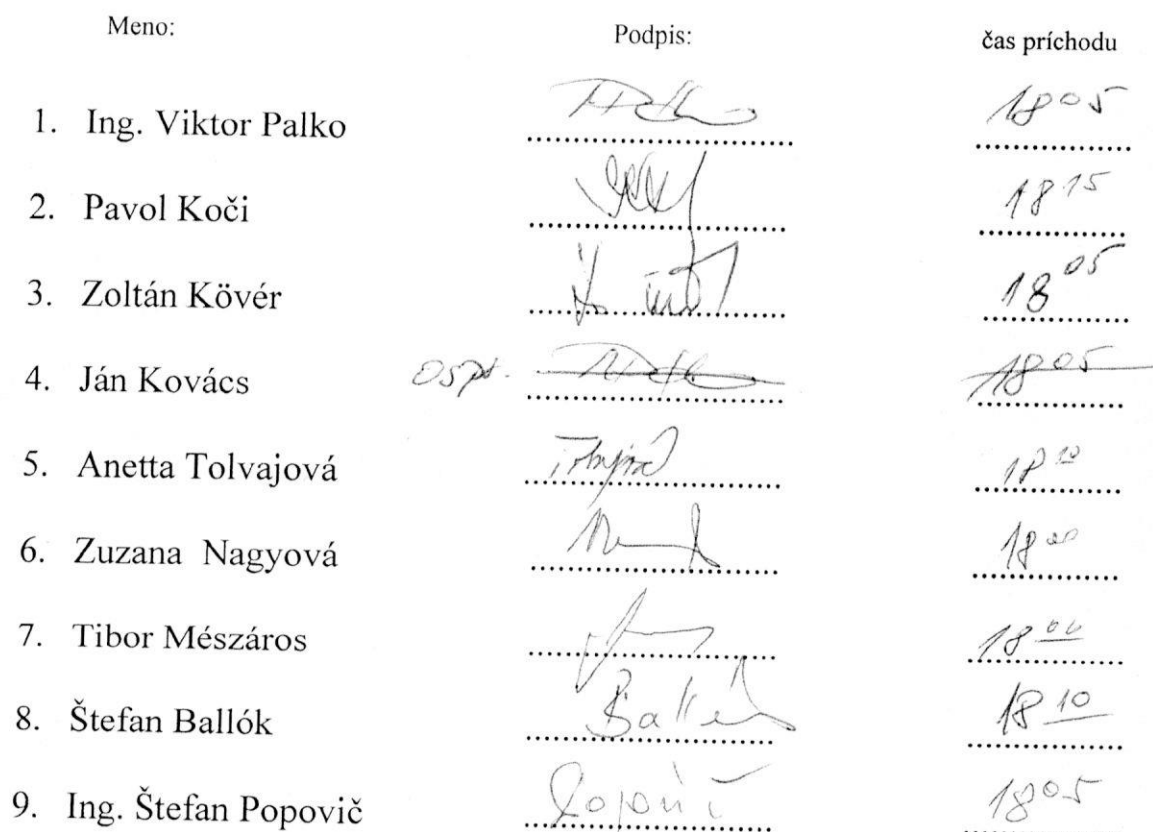 Meno: Podpis: čas príchodu
1. Ing. Viktor Palko 18 05
2. Pavol Koči 18 15
3. Zoltán Kövér 18 05
4. Ján Kovács 18 05
5. Anetta Tolvajová 18 10
6. Zuzana Nagyová 18 00
7. Tibor Mészáros 18 00
8. Štefan Ballók 18 10
9. Ing. Štefan Popovič Popovič 18 05